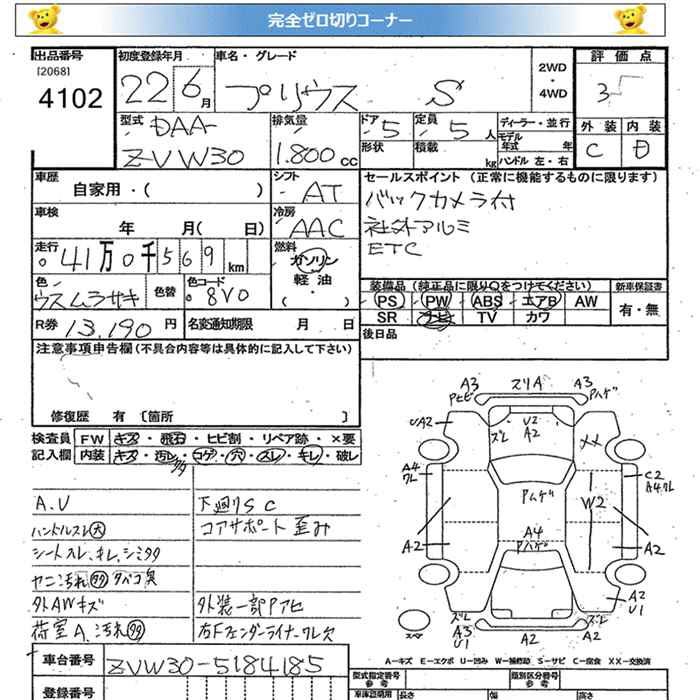 完全ゼロ切りコーナー
出品番号
[2068]
4102
初度登録年月
22 6月
車名・グレード
プリウス S
2WD
・
4WD
評価点
3.5
外装 内装
C D
型式 DAA-
ZVW30
排気量
1.800cc
ドア 5
形状
定員 5人
積載 kg
ディーラー・並行
モデル年式 年
ハンドル 左・右
車歴
自家用・( )
シフト
AT
車検
年 月( 日)
冷房
AAC
走行
41万0千569km
燃料
ガソリン
・
軽油
( ・ )
色
ウスムラサキ
色替
色コード
8V0
R券 13,190円
名変通知期限 月 日
セールスポイント (正常に機能するものに限ります)
バックカメラ付
社外アルミ
ETC
装備品 (純正品に限り○をつけてください)
PS PW ABS エアB AW
SR ナビ TV カワ
新車保証書
有・無
後日品
注意事項申告欄(不具合内容等は具体的に記入して下さい)
修復歴 有 [箇所 ]
検査員記入欄
FW キズ・飛石・ヒビ割・リペア跡・×要
内装 キズ・汚レ・コゲ・穴・スレ・キレ・破レ
A.U
ハンドルスレ大
シートスレ、キレ、シミタタ
ヤニ汚れタタ タバコ臭
外AWキズ
荷室A、汚れタタ
下廻りSC
コアサポート歪み
外装一部Pアセ
右Fフェンダーライナークレ欠
A3
Pヒビ
スリA
A3
Pハゲ
UA2
ズレ
U2
A2
XX
A4
クレ
Pハゲ
W2
C2
A4クレ
A2
A4
Pハゲ
A2
スペア
ズレ
A3
U1
A2
ズレ
A2
A2
U1
A-キズ E-エクボ U-凹み W-補修跡 S-サビ C-腐食 XX-交換済
車台番号 ZVW30-5184185
登録番号
型式指定番号
参考
類別区分番号
参考
車庫証明用
長さ
幅
高さ